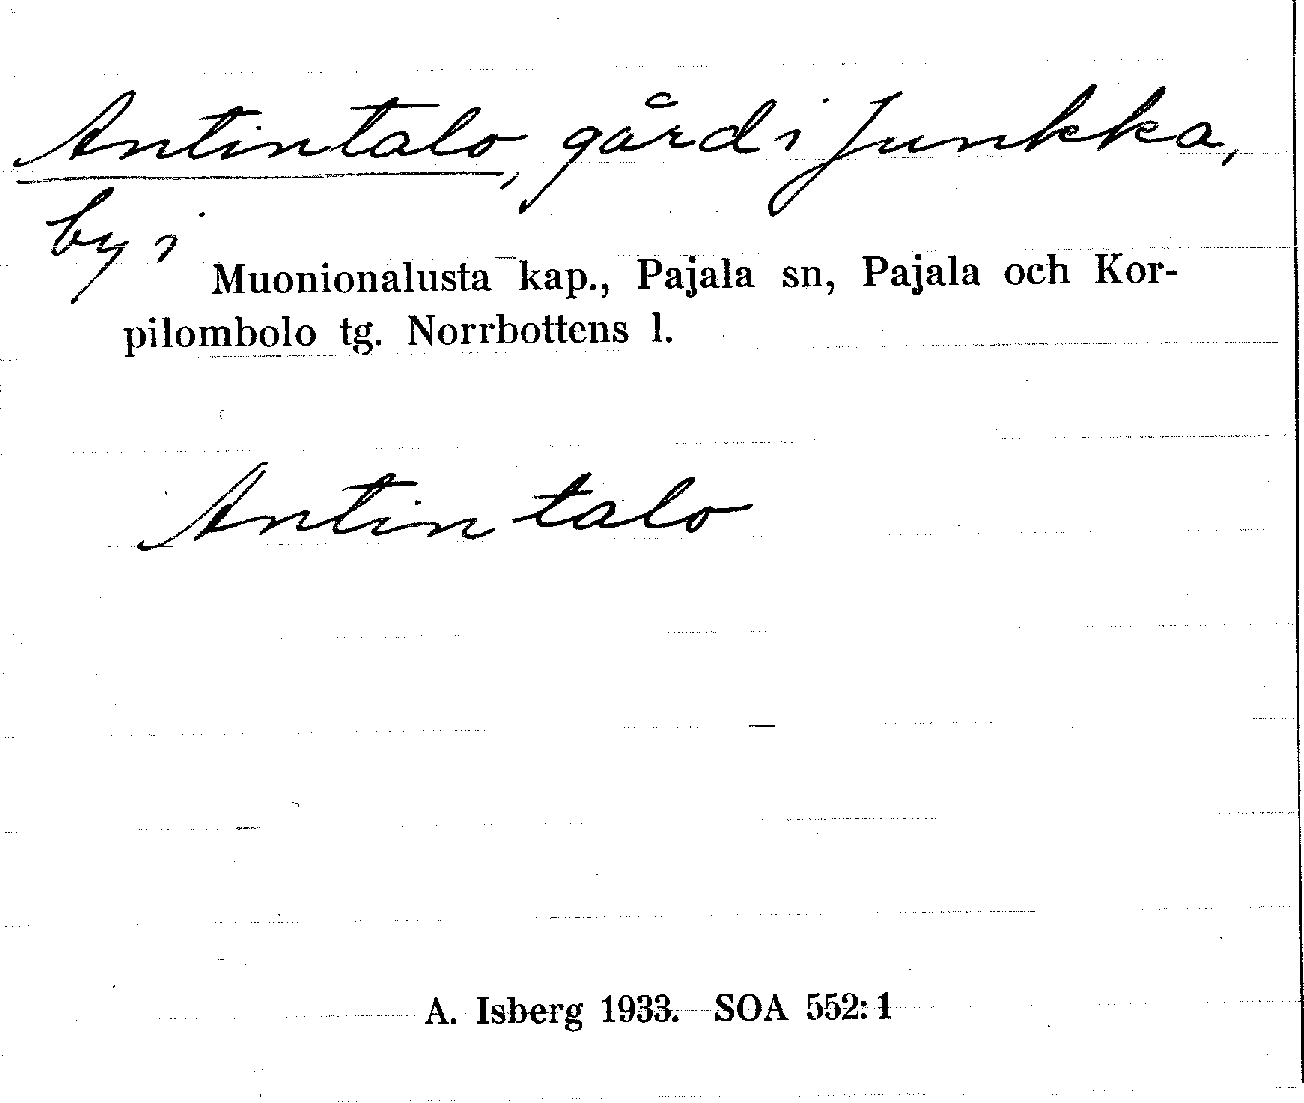 Antintalo, gård i Junkka,
by i
Muonionalusta kap., Pajala sn, Pajala och Kor-
pilombolo tg. Norrbottens l.
Antintalo
A. Isberg 1933. SOA 552:1